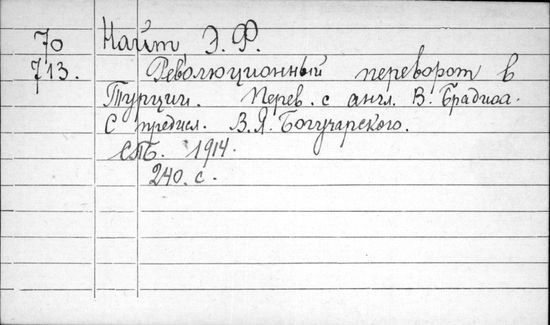 70 Найт, Э. Ф.
713. Революционный переворот в
Турции. Перев. с англ. В. Брадиса.
С предисл. В. Я. Богучарского.
СПБ. 1914.
240. с.